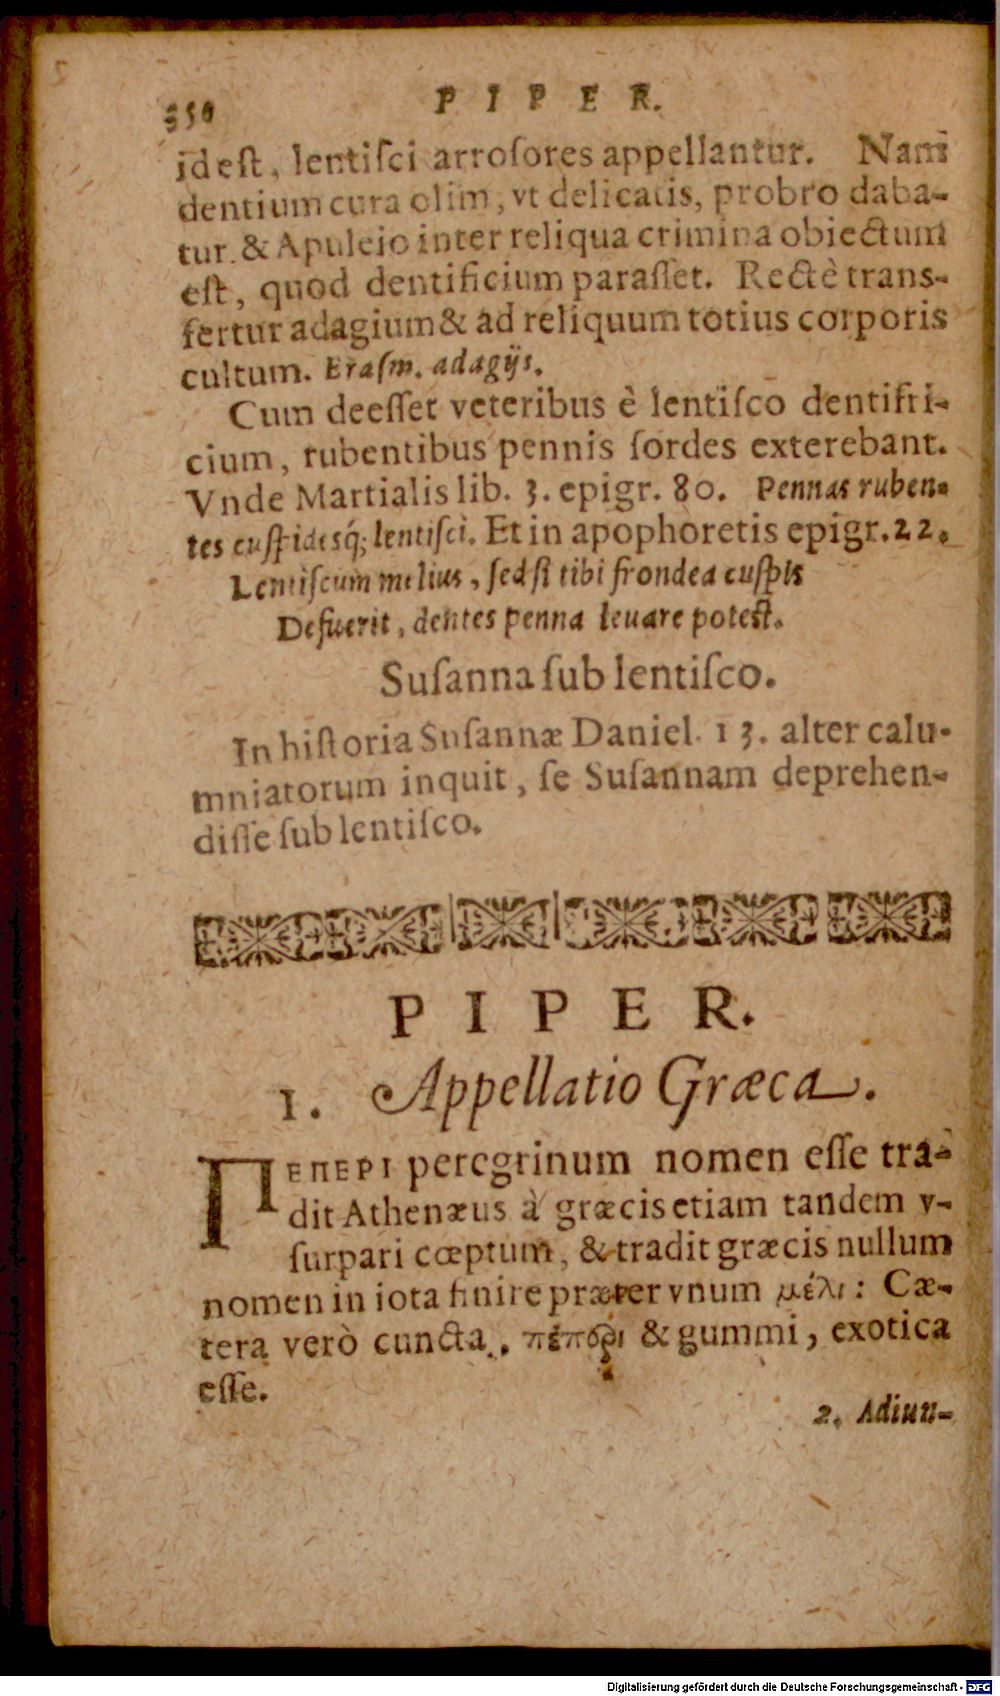 350 PIPER.
id est, lentiſci arroſores appellantur. Nam
dentium cura olim, vt delicatis, probro daba-
tur. & Apuleio inter reliqua crimina obiectum
eſt, quod dentificium paraſſet. Rectè trans-
fertur adagium & ad reliquum totius corporis
cultum. Eraſm. adagijs.
Cum deeſſet veteribus è lentiſco dentifri-
cium, rubentibus pennis ſordes exterebant.
Vnde Martialis lib. 3. epigr. 80. Pennas ruben-
tes cuſpidesq́; lentiſci. Et in apophoretis epigr. 22.
Lentiſcum melius, ſed ſi tibi frondea cuſpis
Defuerit, dentes penna leuare poteſt.
Suſanna ſub lentiſco.
In hiſtoria Suſannæ Daniel. 13. alter calu-
mniatorum inquit, ſe Suſannam deprehen-
diſſe ſub lentiſco.
PIPER.
1. Appellatio Græca.
ΠΕΠΕΡΙ peregrinum nomen eſſe tra-
dit Athenæus à græcis etiam tandem v-
ſurpari cœptum, & tradit græcis nullum
nomen in iota finire præter vnum μέλι: Cæ-
tera verò cuncta, πέπερι & gummi, exotica
eſſe.
2. Adiun-
Digitalisierung gefördert durch die Deutsche Forschungsgemeinschaft - DFG